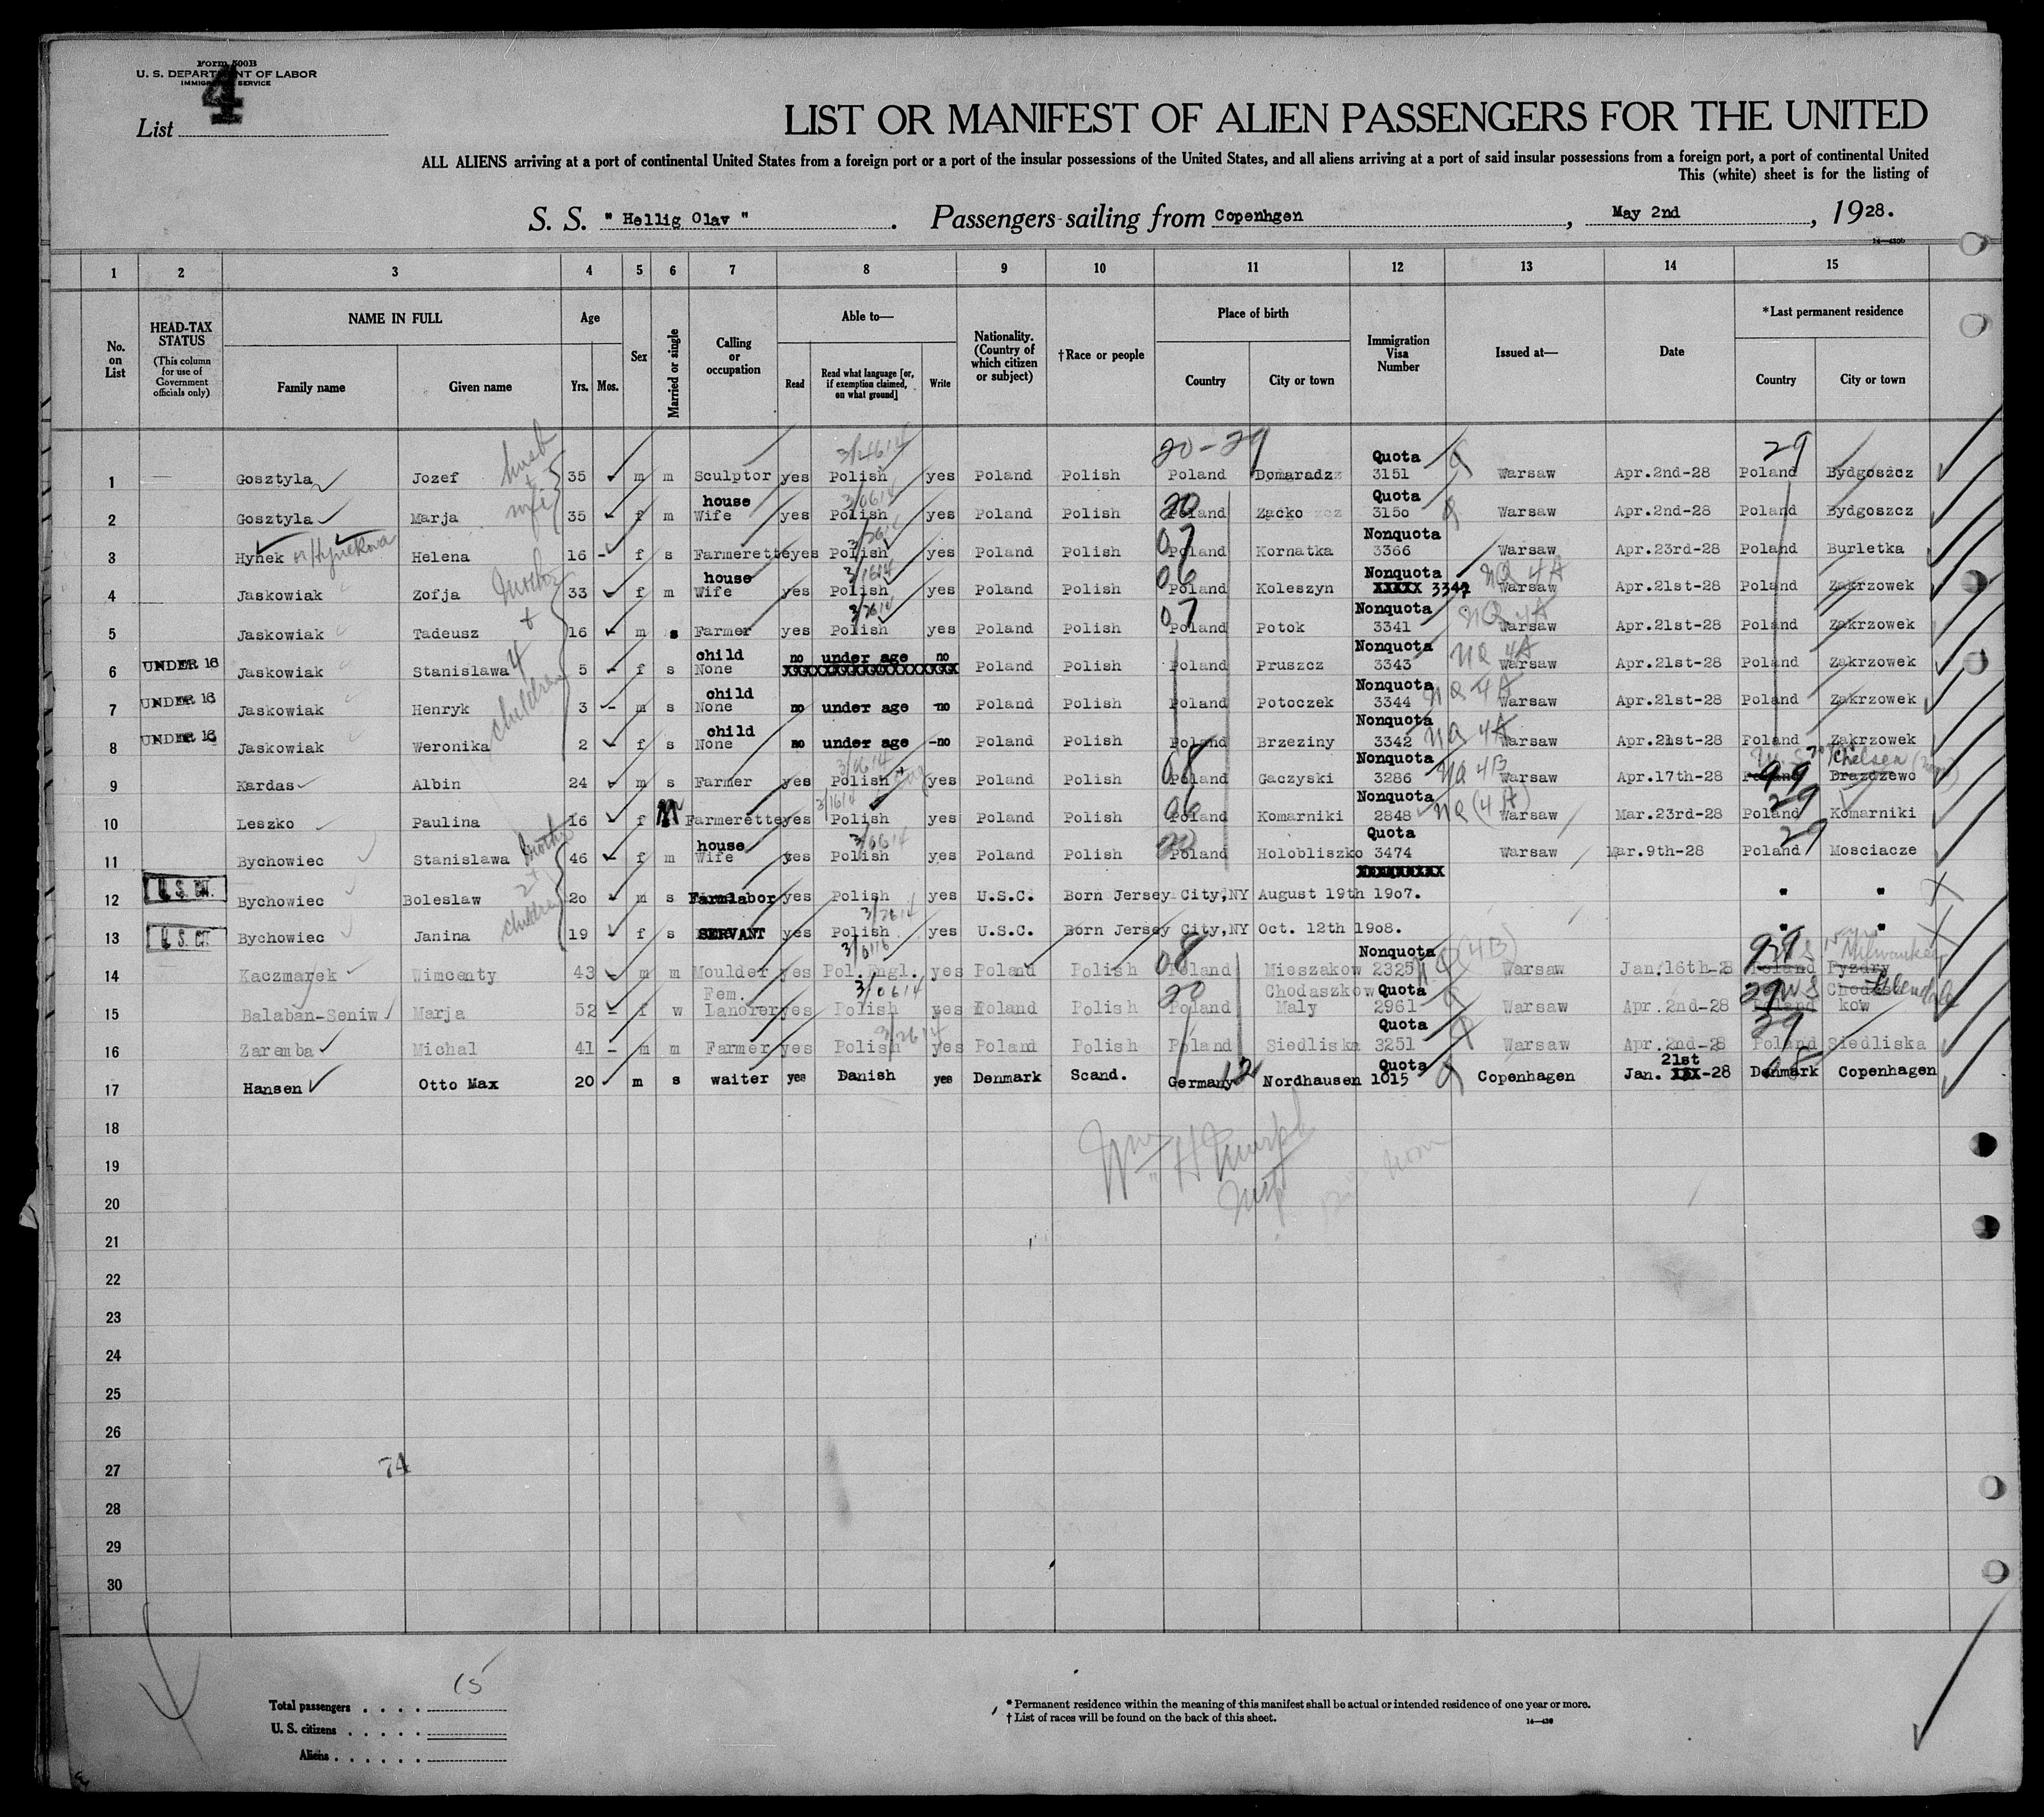 Form 500B
U. S. DEPARTMENT OF LABOR
IMMIGRATION SERVICE
4
List
LIST OR MANIFEST OF ALIEN PASSENGERS FOR THE UNITED
ALL ALIENS arriving at a port of continental United States from a foreign port or a port of the insular possessions of the United States, and all aliens arriving at a port of said insular possessions from a foreign port, a port of continental United
This (white) sheet is for the listing of
S. S. " Hellig Olav " . Passengers sailing from Copenhgen , May 2nd , 1928.
1 2 3 4 5 6 7 8 9 10 11 12 13 14 15
No. on List
HEAD-TAX STATUS
(This column for use of Government officials only)
NAME IN FULL
Family name Given name
Age
Yrs. Mos.
Sex
Married or single
Calling or occupation
Able to—
Read
Read what language [or, if exemption claimed, on what ground]
Write
Nationality. (Country of which citizen or subject)
†Race or people
Place of birth
Country City or town
Immigration Visa Number
Issued at—
Date
*Last permanent residence
Country City or town
husb + wife
20-29 29
Quota
1 Gosztyla Jozef 35 m m Sculptor yes Polish yes Poland Polish Poland Domaradz 3151 Warsaw Apr.2nd-28 Poland Bydgoszcz
house Quota
2 Gosztyla Marja 35 f m Wife yes Polish yes Poland Polish Poland Zacko 3150 Warsaw Apr.2nd-28 Poland Bydgoszcz
Nonquota
3 Hynek or Hynekova Helena 16 f s Farmerette yes Polish yes Poland Polish Poland Kornatka 3366 Warsaw Apr.23rd-28 Poland Burletka
house Nonquota NQ 4A
4 Jaskowiak Zofja 33 f m Wife yes Polish yes Poland Polish Poland Koleszyn XXXXX 3347 Warsaw Apr.21st-28 Poland Zakrzowek
Mother + 4 children
Nonquota NQ 4A
5 Jaskowiak Tadeusz 16 m s Farmer yes Polish yes Poland Polish Poland Potok 3341 Warsaw Apr.21st-28 Poland Zakrzowek
child no under age no Nonquota NQ 4A
6 UNDER 16 Jaskowiak Stanislawa 5 f s None Poland Polish Poland Pruszcz 3343 Warsaw Apr.21st-28 Poland Zakrzowek
child Nonquota NQ 4A
7 UNDER 16 Jaskowiak Henryk 3 m s None no under age no Poland Polish Poland Potoczek 3344 Warsaw Apr.21st-28 Poland Zakrzowek
child Nonquota NQ 4A
8 UNDER 16 Jaskowiak Weronika 2 f s None no under age -no Poland Polish Poland Brzeziny 3342 Warsaw Apr.21st-28 Poland Zakrzowek
Nonquota NQ 4B Chelsea
9 Kardas Albin 24 m s Farmer yes Polish yes Poland Polish Poland Gaczyski 3286 Warsaw Apr.17th-28 Poland Drazdzewo
Nonquota NQ (4A) 29
10 Leszko Paulina 16 f M Farmerette yes Polish yes Poland Polish Poland Komarniki 2848 Warsaw Mar.23rd-28 Poland Komarniki
house Quota 29
11 Bychowiec Stanislawa 46 f m Wife yes Polish yes Poland Polish Poland Holobliszko 3474 Warsaw Mar.9th-28 Poland Mosciacze
Mother 2 children
12 U. S. CIT. Bychowiec Boleslaw 20 m s Farmlabor yes Polish yes U.S.C. Born Jersey City,NY August 19th 1907. " "
13 U. S. CIT. Bychowiec Janina 19 f s SERVANT yes Polish yes U.S.C. Born Jersey City,NY Oct. 12th 1908. " "
Nonquota NQ (4B) 99 US Milwaukee
14 Kaczmarek Wimcenty 43 m m Moulder yes Pol.Engl. yes Poland Polish Poland Mieszakow 2325 Warsaw Jan.16th-28 Poland Pyzdry
Fem. Chodaszkow Quota Glendale
15 Balaban-Seniw Marja 52 f w Laborer yes Polish yes Poland Polish Poland Maly 2961 Warsaw Apr.2nd-28 Poland kow
Quota 29
16 Zaremba Michal 41 m m Farmer yes Polish yes Poland Polish Poland Siedliska 3251 Warsaw Apr.2nd-28 Poland Siedliska
Quota 21st
17 Hansen Otto Max 20 m s waiter yes Danish yes Denmark Scand. Germany Nordhausen 1015 Copenhagen Jan. XXX-28 Denmark Copenhagen
18
19
20
21
22
23
24
25
26
27
28
29
30
74
Total passengers . . . . 15
U. S. citizens . . . . .
Aliens . . . . . .
* Permanent residence within the meaning of this manifest shall be actual or intended residence of one year or more.
† List of races will be found on the back of this sheet.